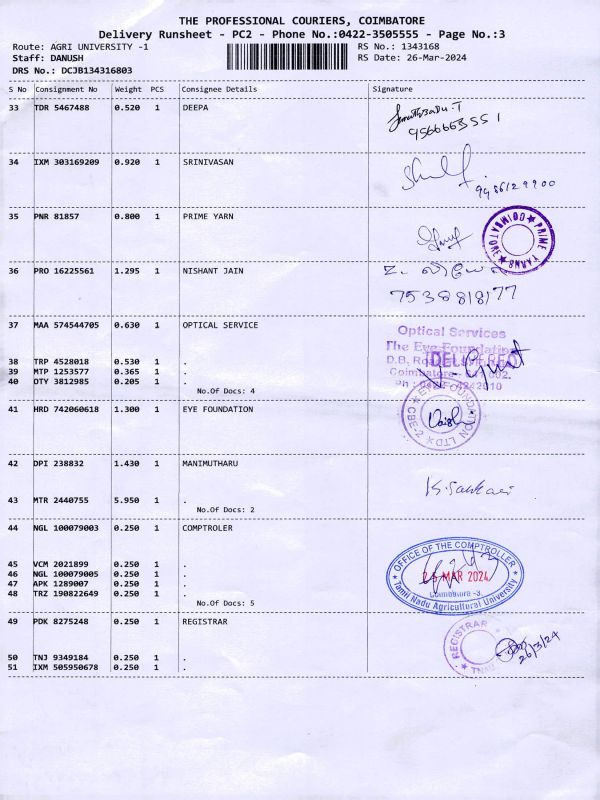 THE PROFESSIONAL COURIERS, COIMBATORE
Delivery Runsheet - PC2 - Phone No.:0422-3505555 - Page No.:3
Route: AGRI UNIVERSITY -1
RS No.: 1343168
Staff: DANUSH
RS Date: 26-Mar-2024
DRS No.: DCJB134316803
S No Consignment No Weight PCS Consignee Details Signature
33 TDR 5467488 0.520 1 DEEPA
9566663551
34 IXM 303169209 0.920 1 SRINIVASAN
9486129900
35 PNR 81857 0.800 1 PRIME YARN
PRIME YARNS COIMBATORE
36 PRO 16225561 1.295 1 NISHANT JAIN
7538818177
37 MAA 574544705 0.630 1 OPTICAL SERVICE
Optical Services
The Eye Foundation
38 TRP 4528018 0.530 1 .
D.B. Road
DELIVERED
39 MTP 1253577 0.365 1 .
Coimbatore
40 OTY 3812985 0.205 1 .
No.Of Docs: 4
41 HRD 742060618 1.300 1 EYE FOUNDATION
EYE FOUNDATION LTD CBE-2
42 DPI 238832 1.430 1 MANIMUTHARU
K. Sankari
43 MTR 2440755 5.950 1 .
No.Of Docs: 2
44 NGL 100079003 0.250 1 COMPTROLER
OFFICE OF THE COMPTROLLER
26 MAR 2024
Coimbatore -3.
Tamil Nadu Agricultural University
45 VCM 2021899 0.250 1 .
46 NGL 100079005 0.250 1 .
47 APX 1289007 0.250 1 .
48 TRZ 190822649 0.250 1 .
No.Of Docs: 5
49 PDK 8275248 0.250 1 REGISTRAR
REGISTRAR
TNAU
26/3/24
50 TNJ 9349184 0.250 1 .
51 IXM 505950678 0.250 1 .